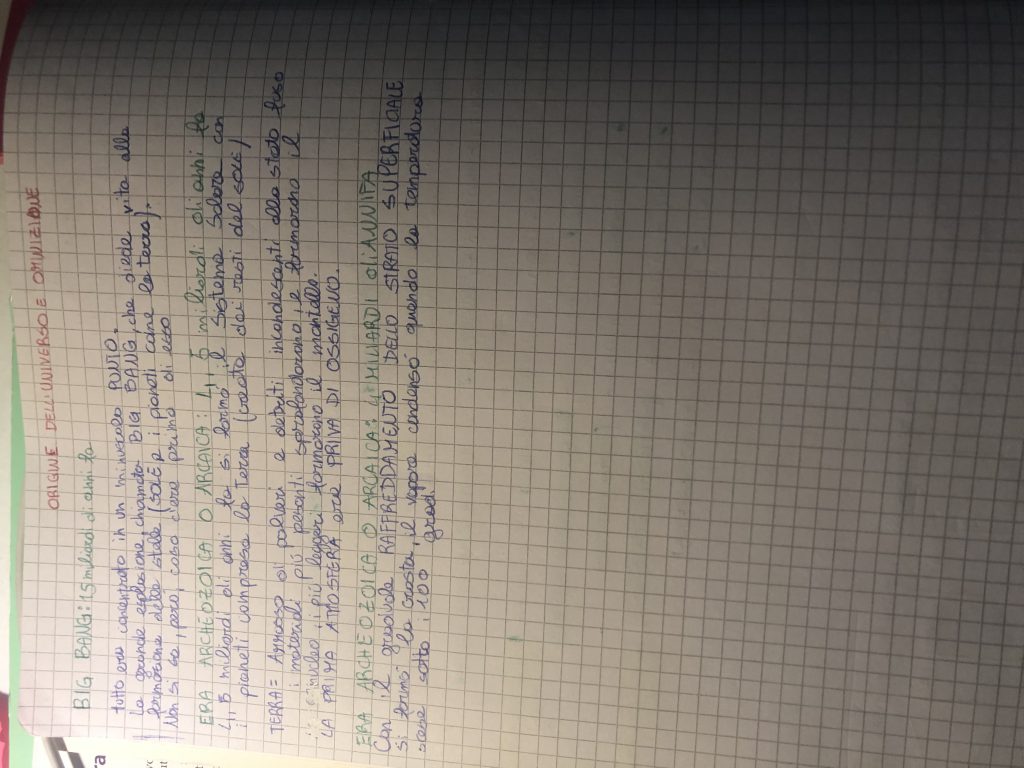 ORIGINE DELL'UNIVERSO E OMINIZIONE
BIG BANG: 15 miliardi di anni fa
tutto era concentrato in un minuscolo PUNTO.
La grande esplosione chiamata BIG BANG che diede vita alla
formazione delle stelle (SOLE e i pianeti come la Terra).
Non si sa, però, cosa c'era prima di esso
ERA ARCHEOZOICA O ARCAICA: 4,5 miliardi di anni fa
4,5 miliardi di anni fa si formò il Sistema Solare con
i pianeti compresa la Terra (nata dai resti del sole)
TERRA= Ammasso di polveri e detriti incandescenti allo stato fuso
i materiali più pesanti sprofondarono, e formarono il
nucleo, i più leggeri formarono il mantello.
LA PRIMA ATMOSFERA era PRIVA DI OSSIGENO.
ERA ARCHEOZOICA O ARCAICA: 4 MILIARDI di ANNI FA
Con il graduale RAFFREDDAMENTO DELLO STRATO SUPERFICIALE
si formò la crosta, il vapore condensò quando la temperatura
scese sotto i 100 gradi.
ra